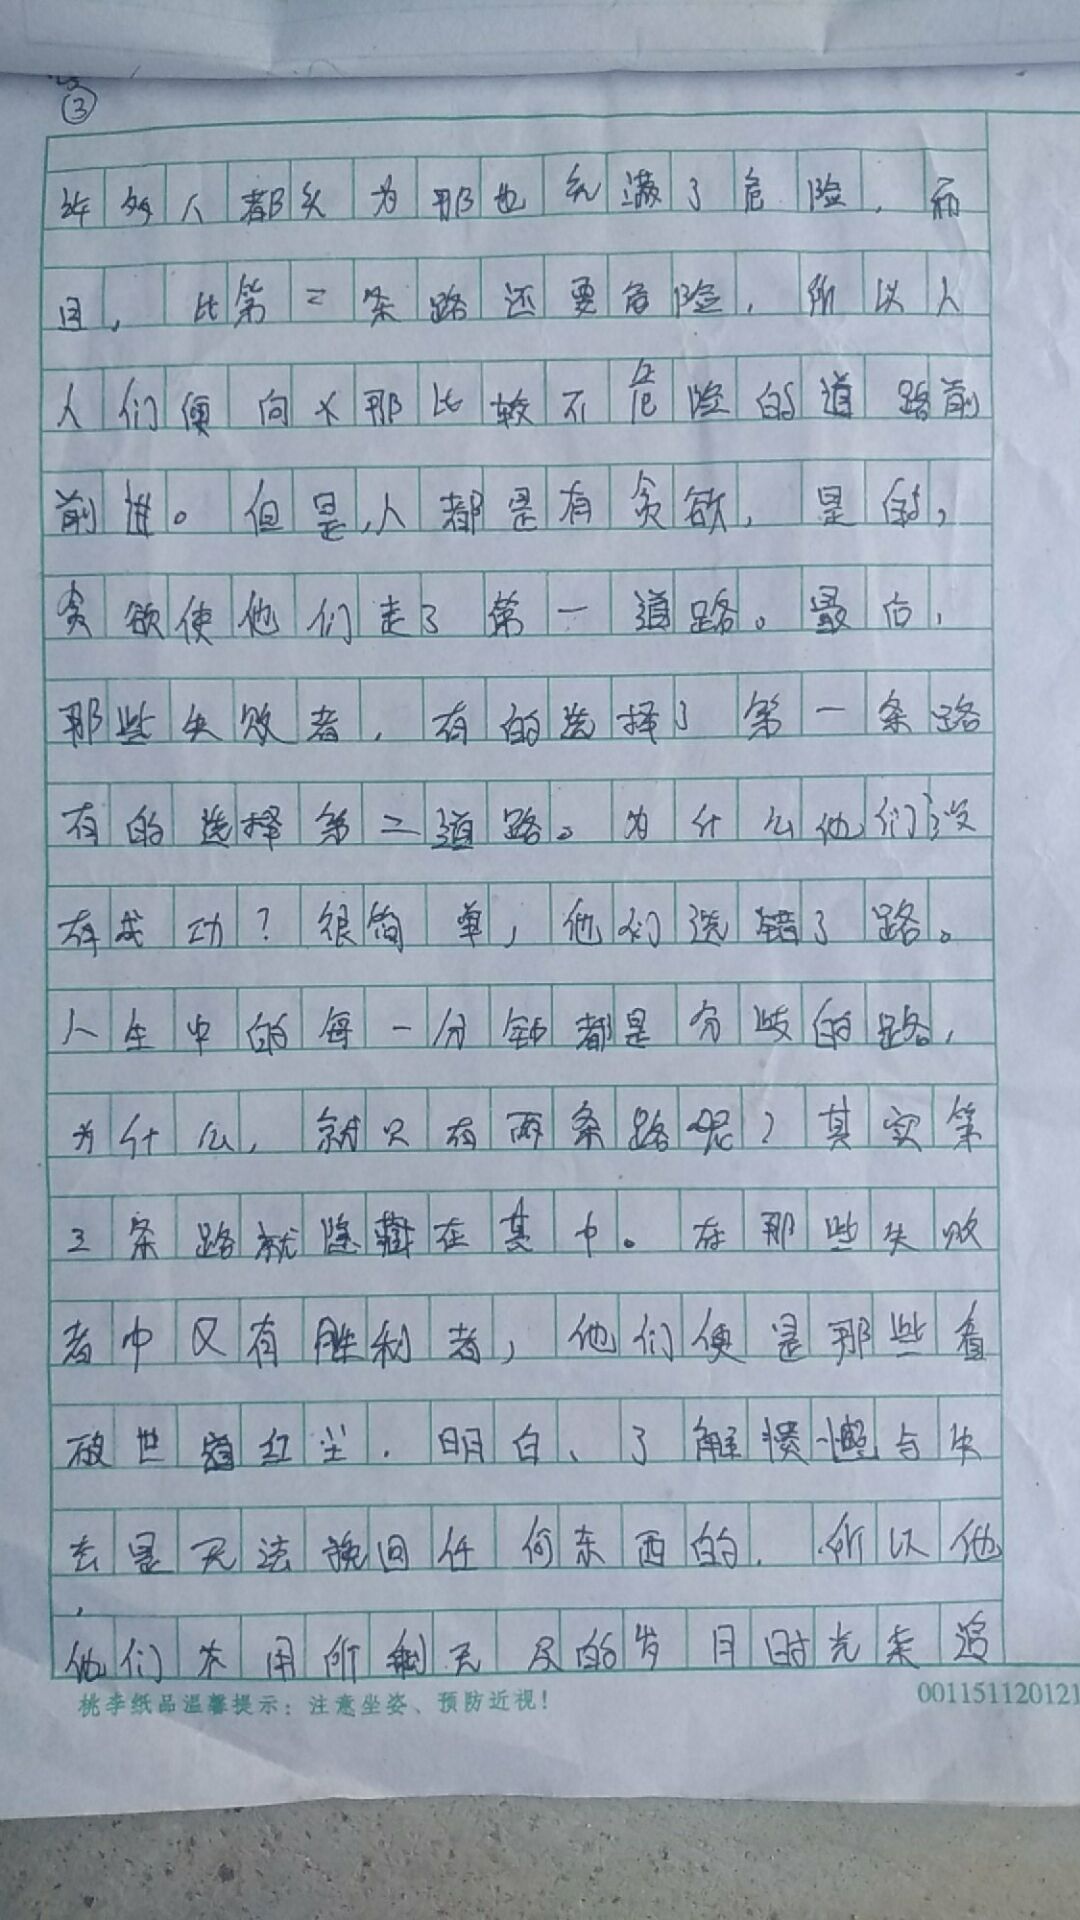 ③
许多人都认为那也充满了危险,而
且,比第二条路还要危险,所以人
人们便向又那比较不危险的道路前
前进。但是,人都是有贪欲,是的,
贪欲使他们走了第一道路。最后,
那些失败者,有的选择了第一条路
有的选择第二道路。为什么他们没
有成功?很简单,他们选错了路。
人生中的每一分钟都是分歧的路,
为什么,就只有两条路呢?其实第
三条路就隐藏在其中。在那些失败
者中又有胜利者,他们便是那些看
破世道红尘,明白、了解愤慨与失
去是无法挽回任何东西的,所以他,
他们本用所剩无及的岁月时光来追
桃李纸品温馨提示:注意坐姿、预防近视!
001151120121